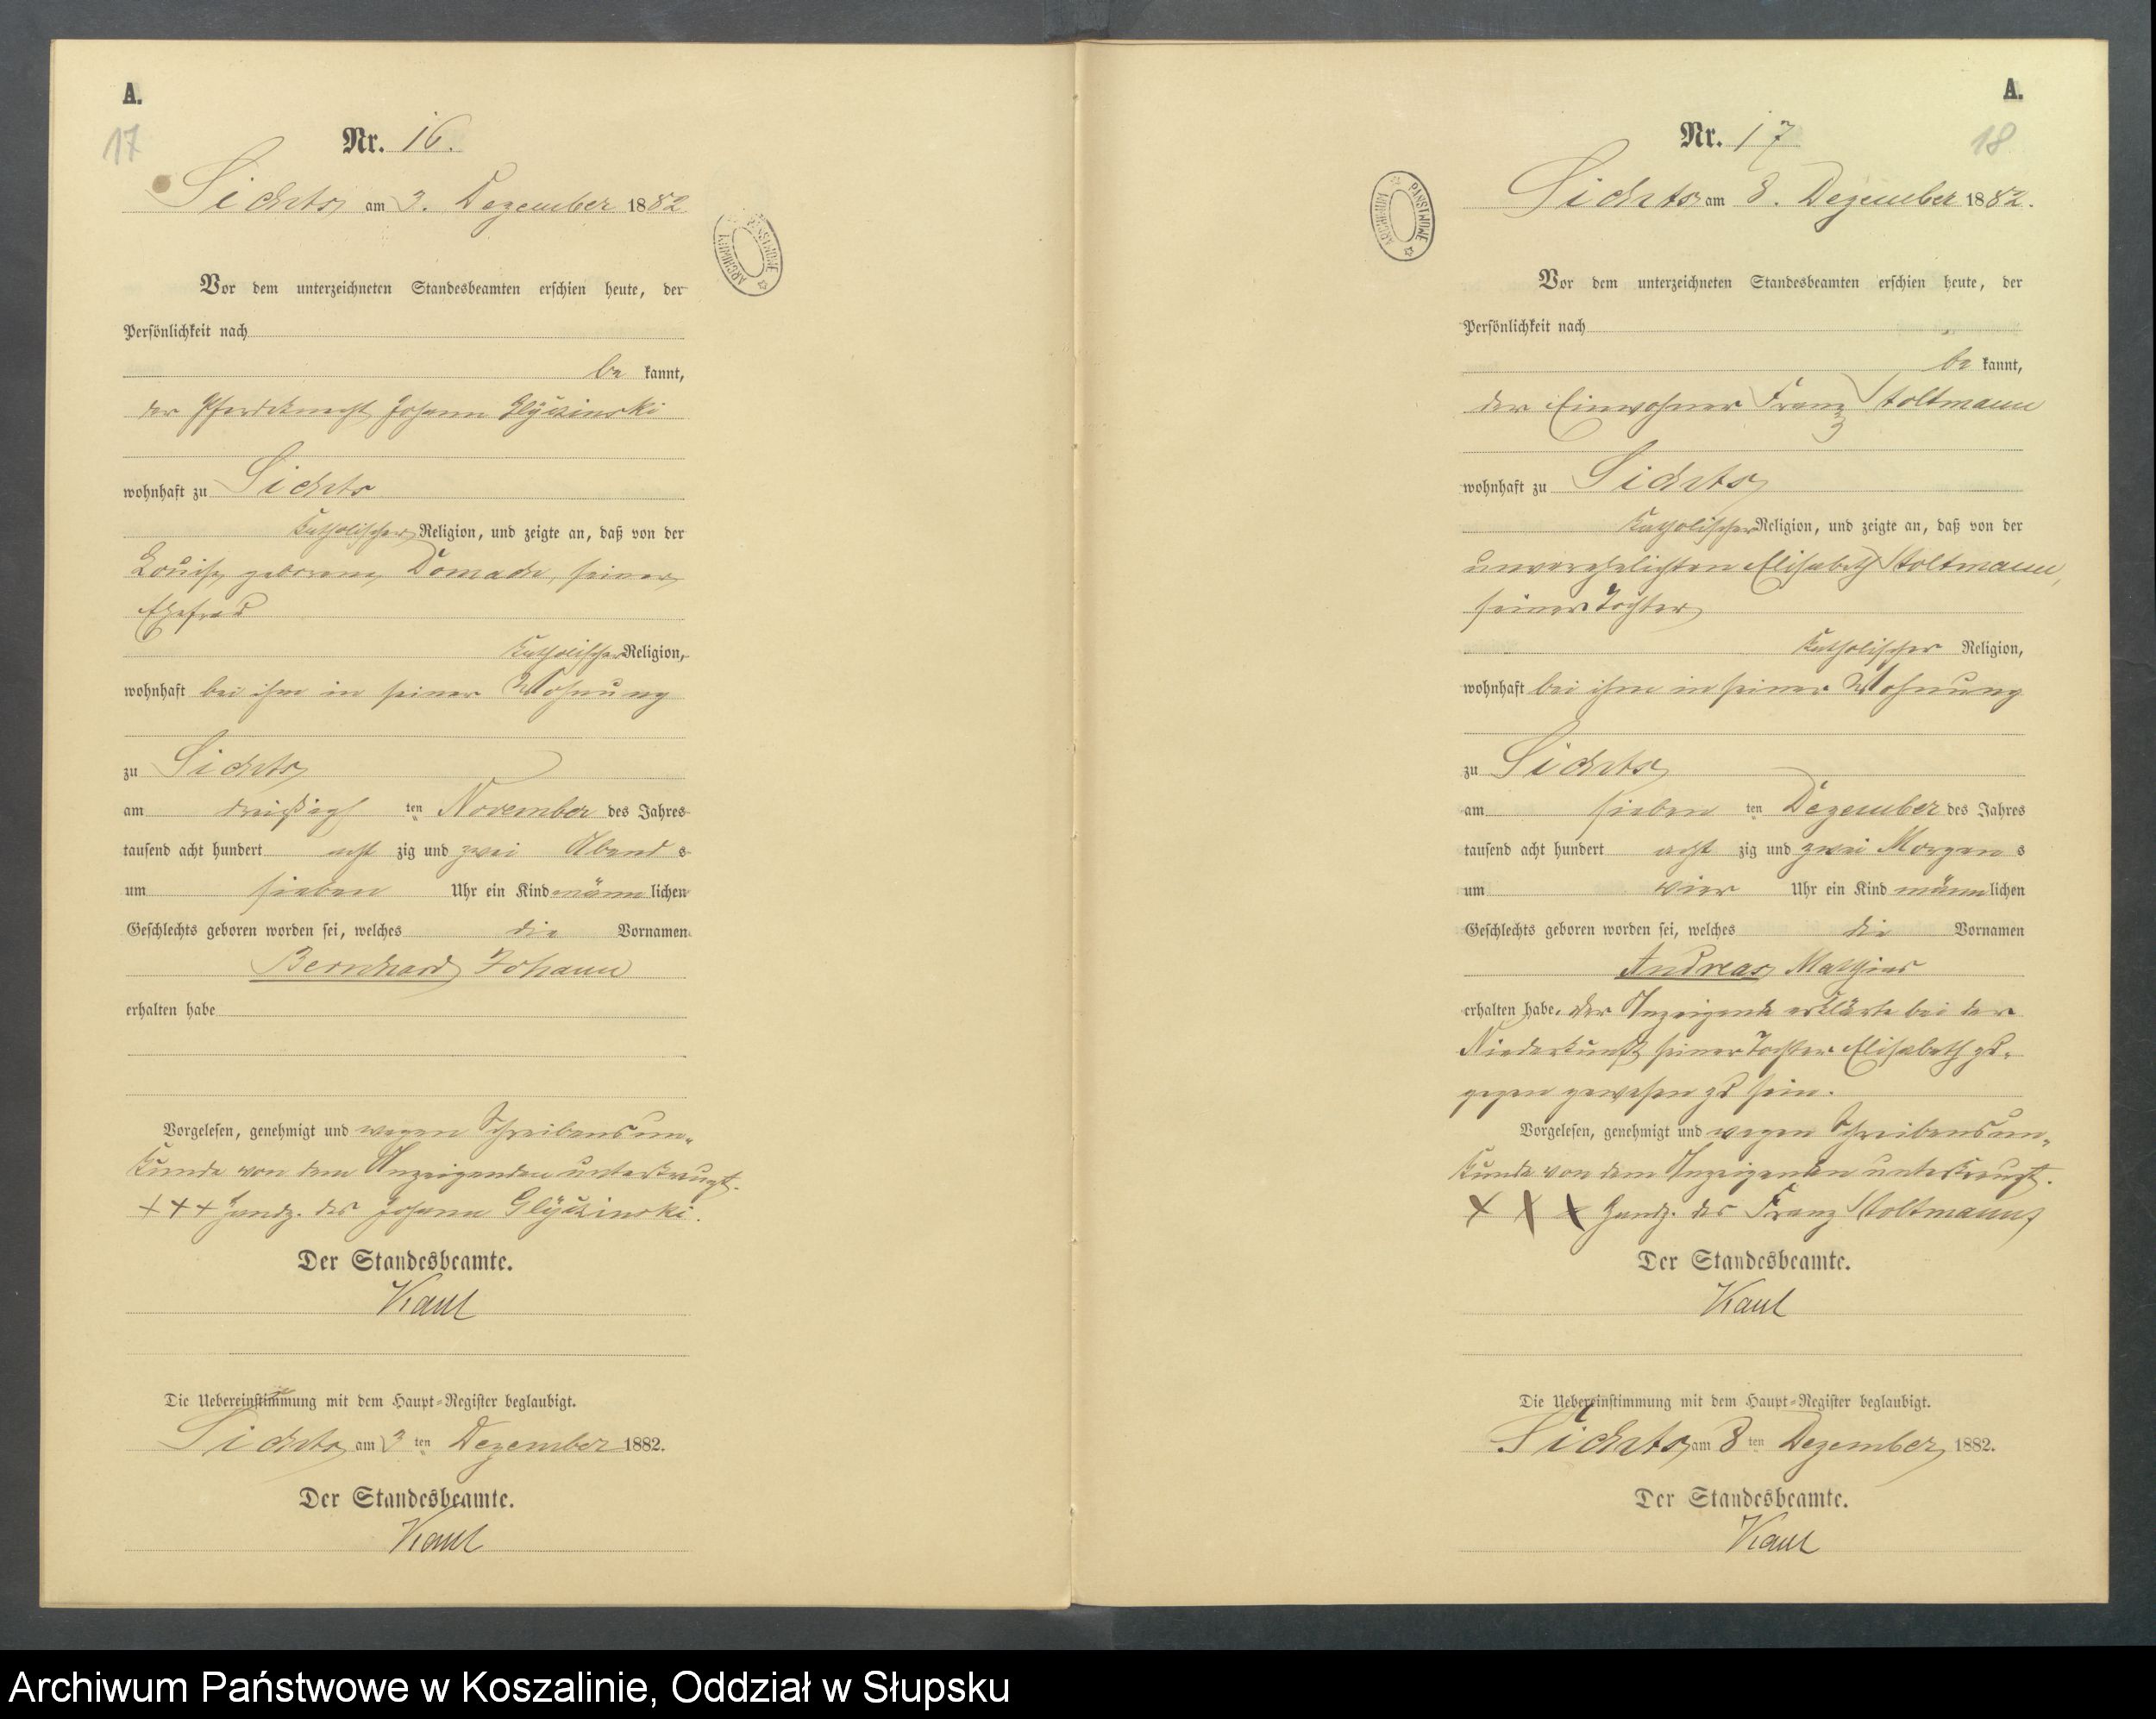 A.
17
Nr. 16.
Sichts am 3. Dezember 1882
ARCHIWUM PAŃSTWOWE
Vor dem unterzeichneten Standesbeamten erschien heute, der
Persönlichkeit nach
be kannt,
der Pferdeknecht Johann Glyszinski
wohnhaft zu Sichts
katholischer Religion, und zeigte an, daß von der
Louise, geborene Domach, seiner
Ehefrau
katholischer Religion,
wohnhaft bei ihm in seiner Wohnung
zu Sichts
am dreißigsten November des Jahres
tausend acht hundert acht zig und zwei Abends
um sieben Uhr ein Kind männlichen
Geschlechts geboren worden sei, welches die Vornamen
Bernhard Johann
erhalten habe
Vorgelesen, genehmigt und wegen Schreibensun-
kunde von dem Anzeigenden unterkreuzt.
+++ Handz. des Johann Glyszinski.
Der Standesbeamte.
Kaul
Die Uebereinstimmung mit dem Haupt-Register beglaubigt.
Sichts am 3 ten Dezember 1882.
Der Standesbeamte.
Kaul
A.
18
Nr. 17
Sichts am 8. Dezember 1882.
ARCHIWUM PAŃSTWOWE
Vor dem unterzeichneten Standesbeamten erschien heute, der
Persönlichkeit nach
be kannt,
der Einwohner Franz Stoltmann
wohnhaft zu Sichts
katholischer Religion, und zeigte an, daß von der
unverehelichten Elisabeth Stoltmann,
seiner Tochter
katholischer Religion,
wohnhaft bei ihm in seiner Wohnung
zu Sichts
am sieben ten Dezember des Jahres
tausend acht hundert acht zig und zwei Morgens
um vier Uhr ein Kind männlichen
Geschlechts geboren worden sei, welches die Vornamen
Andreas Mathias
erhalten habe. Der Anzeigende erklärte bei der
Niederkunft seiner Tochter Elisabeth zu-
gegen gewesen zu sein.
Vorgelesen, genehmigt und wegen Schreibensun-
kunde von dem Anzeigenden unterkreuzt.
+ + + Handz. des Franz Stoltmann
Der Standesbeamte.
Kaul
Die Uebereinstimmung mit dem Haupt-Register beglaubigt.
Sichts am 8 ten Dezember 1882.
Der Standesbeamte.
Kaul
Archiwum Państwowe w Koszalinie, Oddział w Słupsku